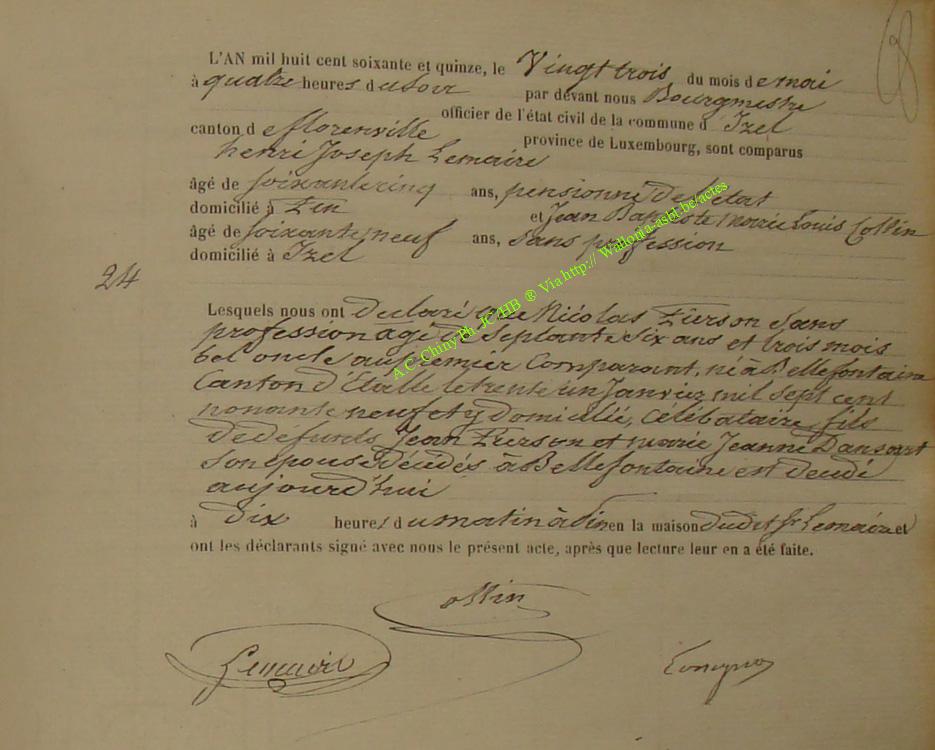 L'AN mil huit cent soixante et quinze, le Vingt trois du mois de mai
à quatre heures du soir par devant nous Bourgmestre
officier de l'état civil de la commune d Izel
canton de florenville province de Luxembourg, sont comparus
henri Joseph Lemaire
âgé de soixante cinq ans, pensionné de l'état
domicilié à Pin et Jean Baptiste marie Louis Collin
âgé de soixante neuf ans, sans profession
domicilié à Izel
24
Lesquels nous ont declaré que Nicolas Pierson sans
profession agé de septante six ans et trois mois
bel oncle au premier Comparant, né à Bellefontaine
Canton d'Etalle le trente un Janvier mil sept cent
nonante neuf et y domicilié, célibataire, fils
de défunts Jean Pierson et marie Jeanne
son épouse décédés à Bellefontaine est décédé
aujourd'hui
à dix heures du matin à Pin en la maison dudit Sr Lemaire et
ont les déclarants signé avec nous le présent acte, après que lecture leur en a été faite.
ollin
Lemaire
A.C. Chiny Ph. JC HB ® Via http:// Wallonia-asbl.be/actes